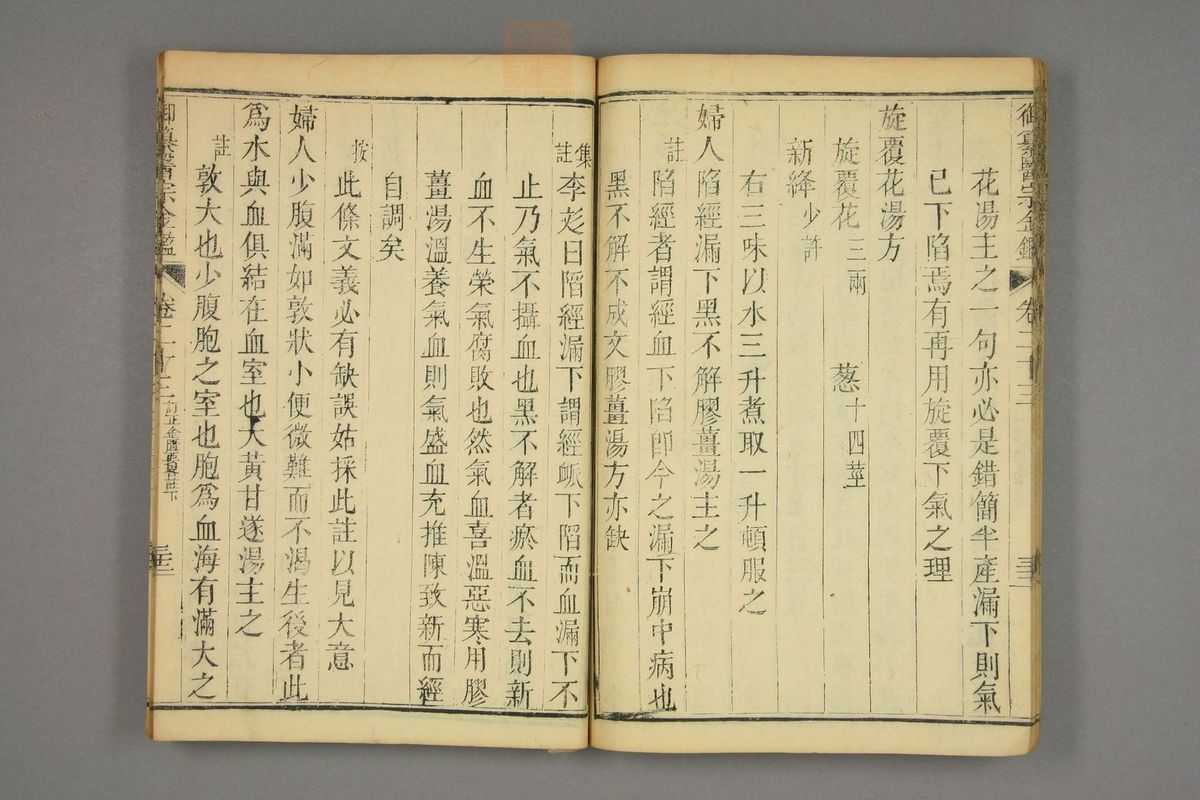 御纂醫宗金鑑 卷二十三
花湯主之一句亦必是錯簡半產漏下則氣
已下陷焉有再用旋覆下氣之理
旋覆花湯方
旋覆花三兩 葱十四莖
新絳少許
右三味以水三升煮取一升頓服之
婦人陷經漏下黑不解膠薑湯主之
註陷經者謂經血下陷即今之漏下崩中病也
黑不解不成文膠薑湯方亦缺
集註李彣曰陷經漏下謂經脈下陷而血漏下不
止乃氣不攝血也黑不解者瘀血不去則新
血不生榮氣腐敗也然氣血喜溫惡寒用膠
薑湯溫養氣血則氣盛血充推陳致新而經
自調矣
按此條文義必有缺誤姑採此註以見大意
婦人少腹滿如敦狀小便微難而不渴生後者此
爲水與血俱結在血室也大黃甘遂湯主之
註敦大也少腹胞之室也胞爲血海有滿大之
御纂醫宗金鑑 卷二十三 訂正金匱要畧註下